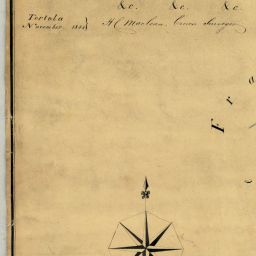 &c. &c. &c.
Tortola
November
A C Maclean. Crown Surveyor
F r